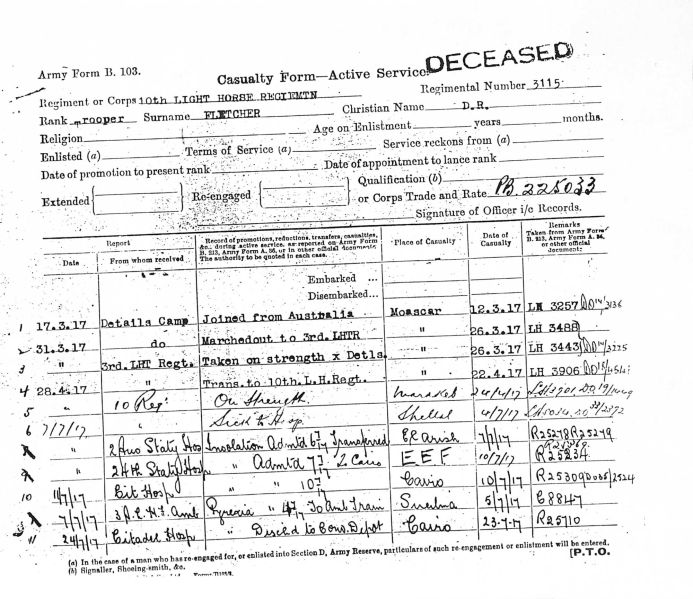 DECEASED
Army Form B. 103.
Casualty Form—Active Service.
Regiment or Corps 10th LIGHT HORSE REGIEMTN Regimental Number 3115
Rank Trooper Surname FLETCHER Christian Name D.R.
Religion Age on Enlistment years months.
Enlisted (a) Terms of Service (a) Service reckons from (a)
Date of promotion to present rank Date of appointment to lance rank
Extended Re-engaged Qualification (b)
or Corps Trade and Rate PB. 225033
Signature of Officer i/c Records.
Report
Date From whom received
Record of promotions, reductions, transfers, casualties, &c., during active service, as reported on Army Form B. 213, Army Form A. 36, or in other official documents. The authority to be quoted in each case.
Place of Casualty
Date of Casualty
Remarks Taken from Army Form B. 213, Army Form A. 36, or other official documents.
Embarked ...
Disembarked...
1 17.3.17 Details Camp Joined from Australia Moascar 12.3.17 LH 3257
2 31.3.17 do Marchedout to 3rd. LHTR " 26.3.17 LH 3488
3 " 3rd. LHT Regt. Taken on strength x Detls. " 26.3.17 LH 3443
4 28.4.17 " Trans. to 10th. L.H. Regt. " 22.4.17 LH 3906
5 " 10 Reg On Strength 24/4/17
6 7/7/17 " Sick to Hosp. Shellal 4/7/17
" 2 Aus Staty Hos Insolation Admtd Transferred El Arish 7/7/17 R25278 R25279
" 24th Staty Hosp " Admtd to Cairo E E F 10/7/17 R25234
10 11/7/17 Cit Hosp " " Cairo 10/7/17 R25309
7/7/17 Pyrexia To Amb Train 5/7/17 C8847
11 24/7/17 Citadel Hosp " Disc'd to Depot Cairo 23-7-17 R25710
(a) In the case of a man who has re-engaged for, or enlisted into Section D, Army Reserve, particulars of such re-engagement or enlistment will be entered.
(b) Signaller, Shoeing-smith, &c.
[P.T.O.